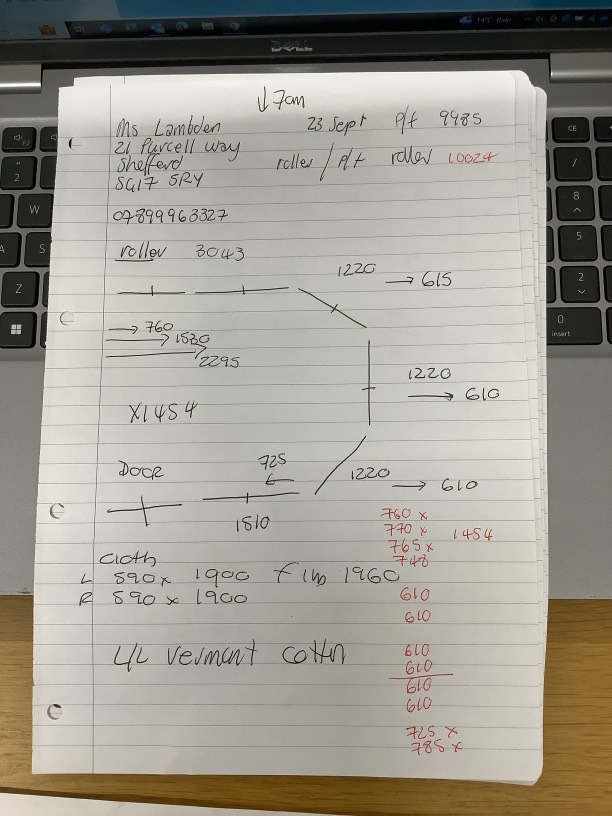 DELL
14°C Rain
↓7cm
Ms Lambden 23 Sept P/t 9985
21 Purcell way
Shefferd roller / P/t roller 10024
SG17 5RY
07899963327
roller 3043
1220 → 615
→ 760
→ 1530
→ 2295
1220
→ 610
X1454
DOOR
725
←
1220 → 610
1510
760 x
770 x 1454
765 x
748
Cloth
L 590 x 1900 f lib 1960
R 590 x 1900
610
610
L/L vermont cotton
610
610
610
610
725 x
785 x
CE
2
/
W
8
A
S
5
Z
2
0
insert